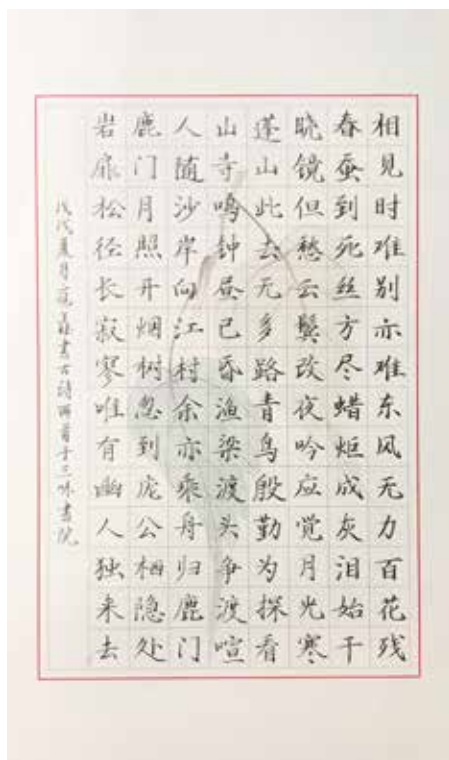 相见时难别亦难东风无力百花残
春蚕到死丝方尽蜡炬成灰泪始干
晓镜但愁云鬓改夜吟应觉月光寒
蓬山此去无多路青鸟殷勤为探看
山寺鸣钟昼已昏渔梁渡头争渡喧
人随沙岸向江村余亦乘舟归鹿门
鹿门月照开烟树忽到庞公栖隐处
岩扉松径长寂寥唯有幽人独来去
戊戌夏月書古詩两首于三味書院